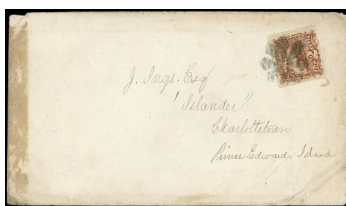 J. Ings. Esq
"Islander"
Charlottetown
Prince Edwards Island